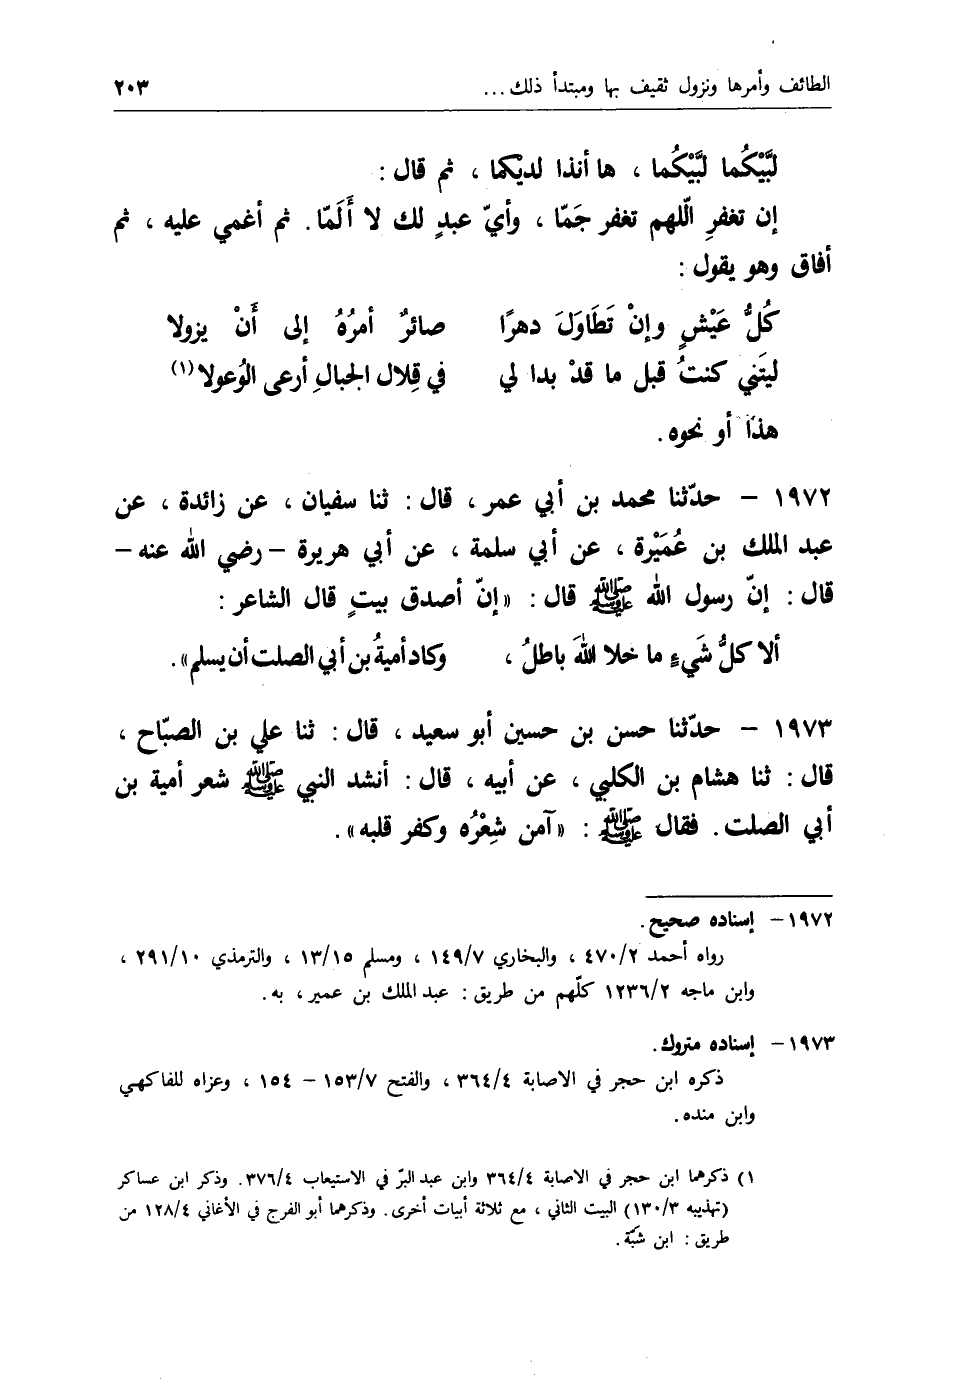 الطائف وأمرها ونزول ثقيف بها ومبتدأ ذلك... ٢٠٣
لبَّيْكُما لبَّيْكُما ، ها أنذا لديْكما ، ثم قال :
إن تغفرِ الّلهم تغفر جَمّا ، وأيّ عبدٍ لك لا أَلَمّا. ثم أغمي عليه ، ثم
أفاق وهو يقول :
كُلُّ عَيْشٍ وإنْ تَطَاوَلَ دهرًا صائرٌ أمرُهُ إلى أَنْ يزولا
ليتَني كنتُ قبل ما قدْ بدا لي في قِلال الجبالِ أرعى الوُعولا(١)
هذا أو نحوه.
١٩٧٢ – حدّثنا محمد بن أبي عمر ، قال : ثنا سفيان ، عن زائدة ، عن
عبد الملك بن عُمَيْرة ، عن أبي سلمة ، عن أبي هريرة – رضي الله عنه –
قال : إنّ رسول الله ﷺ قال : «إنّ أصدق بيتٍ قال الشاعر :
ألا كلُّ شَيءٍ ما خلا اللهَ باطلُ ، وكاد أميةُ بن أبي الصلت أن يسلم».
١٩٧٣ – حدّثنا حسن بن حسين أبو سعيد ، قال : ثنا علي بن الصبّاح ،
قال : ثنا هشام بن الكلبي ، عن أبيه ، قال : أنشد النبي ﷺ شعر أمية بن
أبي الصلت. فقال ﷺ : «آمن شِعْرُه وكفر قلبه».
١٩٧٢ – إسناده صحيح.
رواه أحمد ٤٧٠/٢ ، والبخاري ١٤٩/٧ ، ومسلم ١٣/١٥ ، والترمذي ٢٩١/١٠ ،
وابن ماجه ١٢٣٦/٢ كلّهم من طريق : عبد الملك بن عمير ، به.
١٩٧٣ – إسناده متروك.
ذكره ابن حجر في الاصابة ٣٦٤/٤ ، والفتح ١٥٣/٧ – ١٥٤ ، وعزاه للفاكهي
وابن منده.
١) ذكرهما ابن حجر في الاصابة ٣٦٤/٤ وابن عبد البرّ في الاستيعاب ٣٧٦/٤. وذكر ابن عساكر
(تهذيبه ١٣٠/٣) البيت الثاني ، مع ثلاثة أبيات أخرى. وذكرهما أبو الفرج في الأغاني ١٢٨/٤ من
طريق : ابن شبّة.